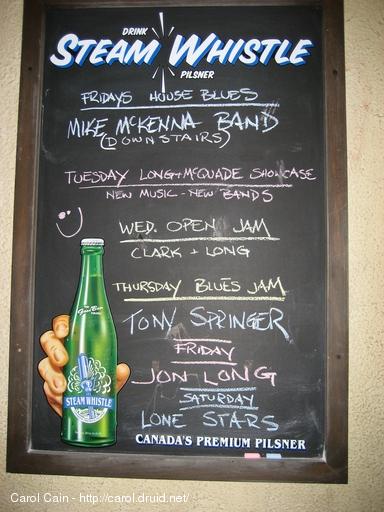 DRINK
STEAM WHISTLE
PILSNER
FRIDAYS HOUSE BLUES
MIKE McKENNA BAND
(DOWNSTAIRS)
TUESDAY LONG+McQUADE SHOWCASE
NEW MUSIC - NEW BANDS
WED. OPEN JAM
CLARK + LONG
THURSDAY BLUES JAM
TONY SPRINGER
FRIDAY
JON LONG
SATURDAY
LONE STARS
STEAM WHISTLE
CANADA'S PREMIUM PILSNER
Carol Cain - http://carol.druid.net/